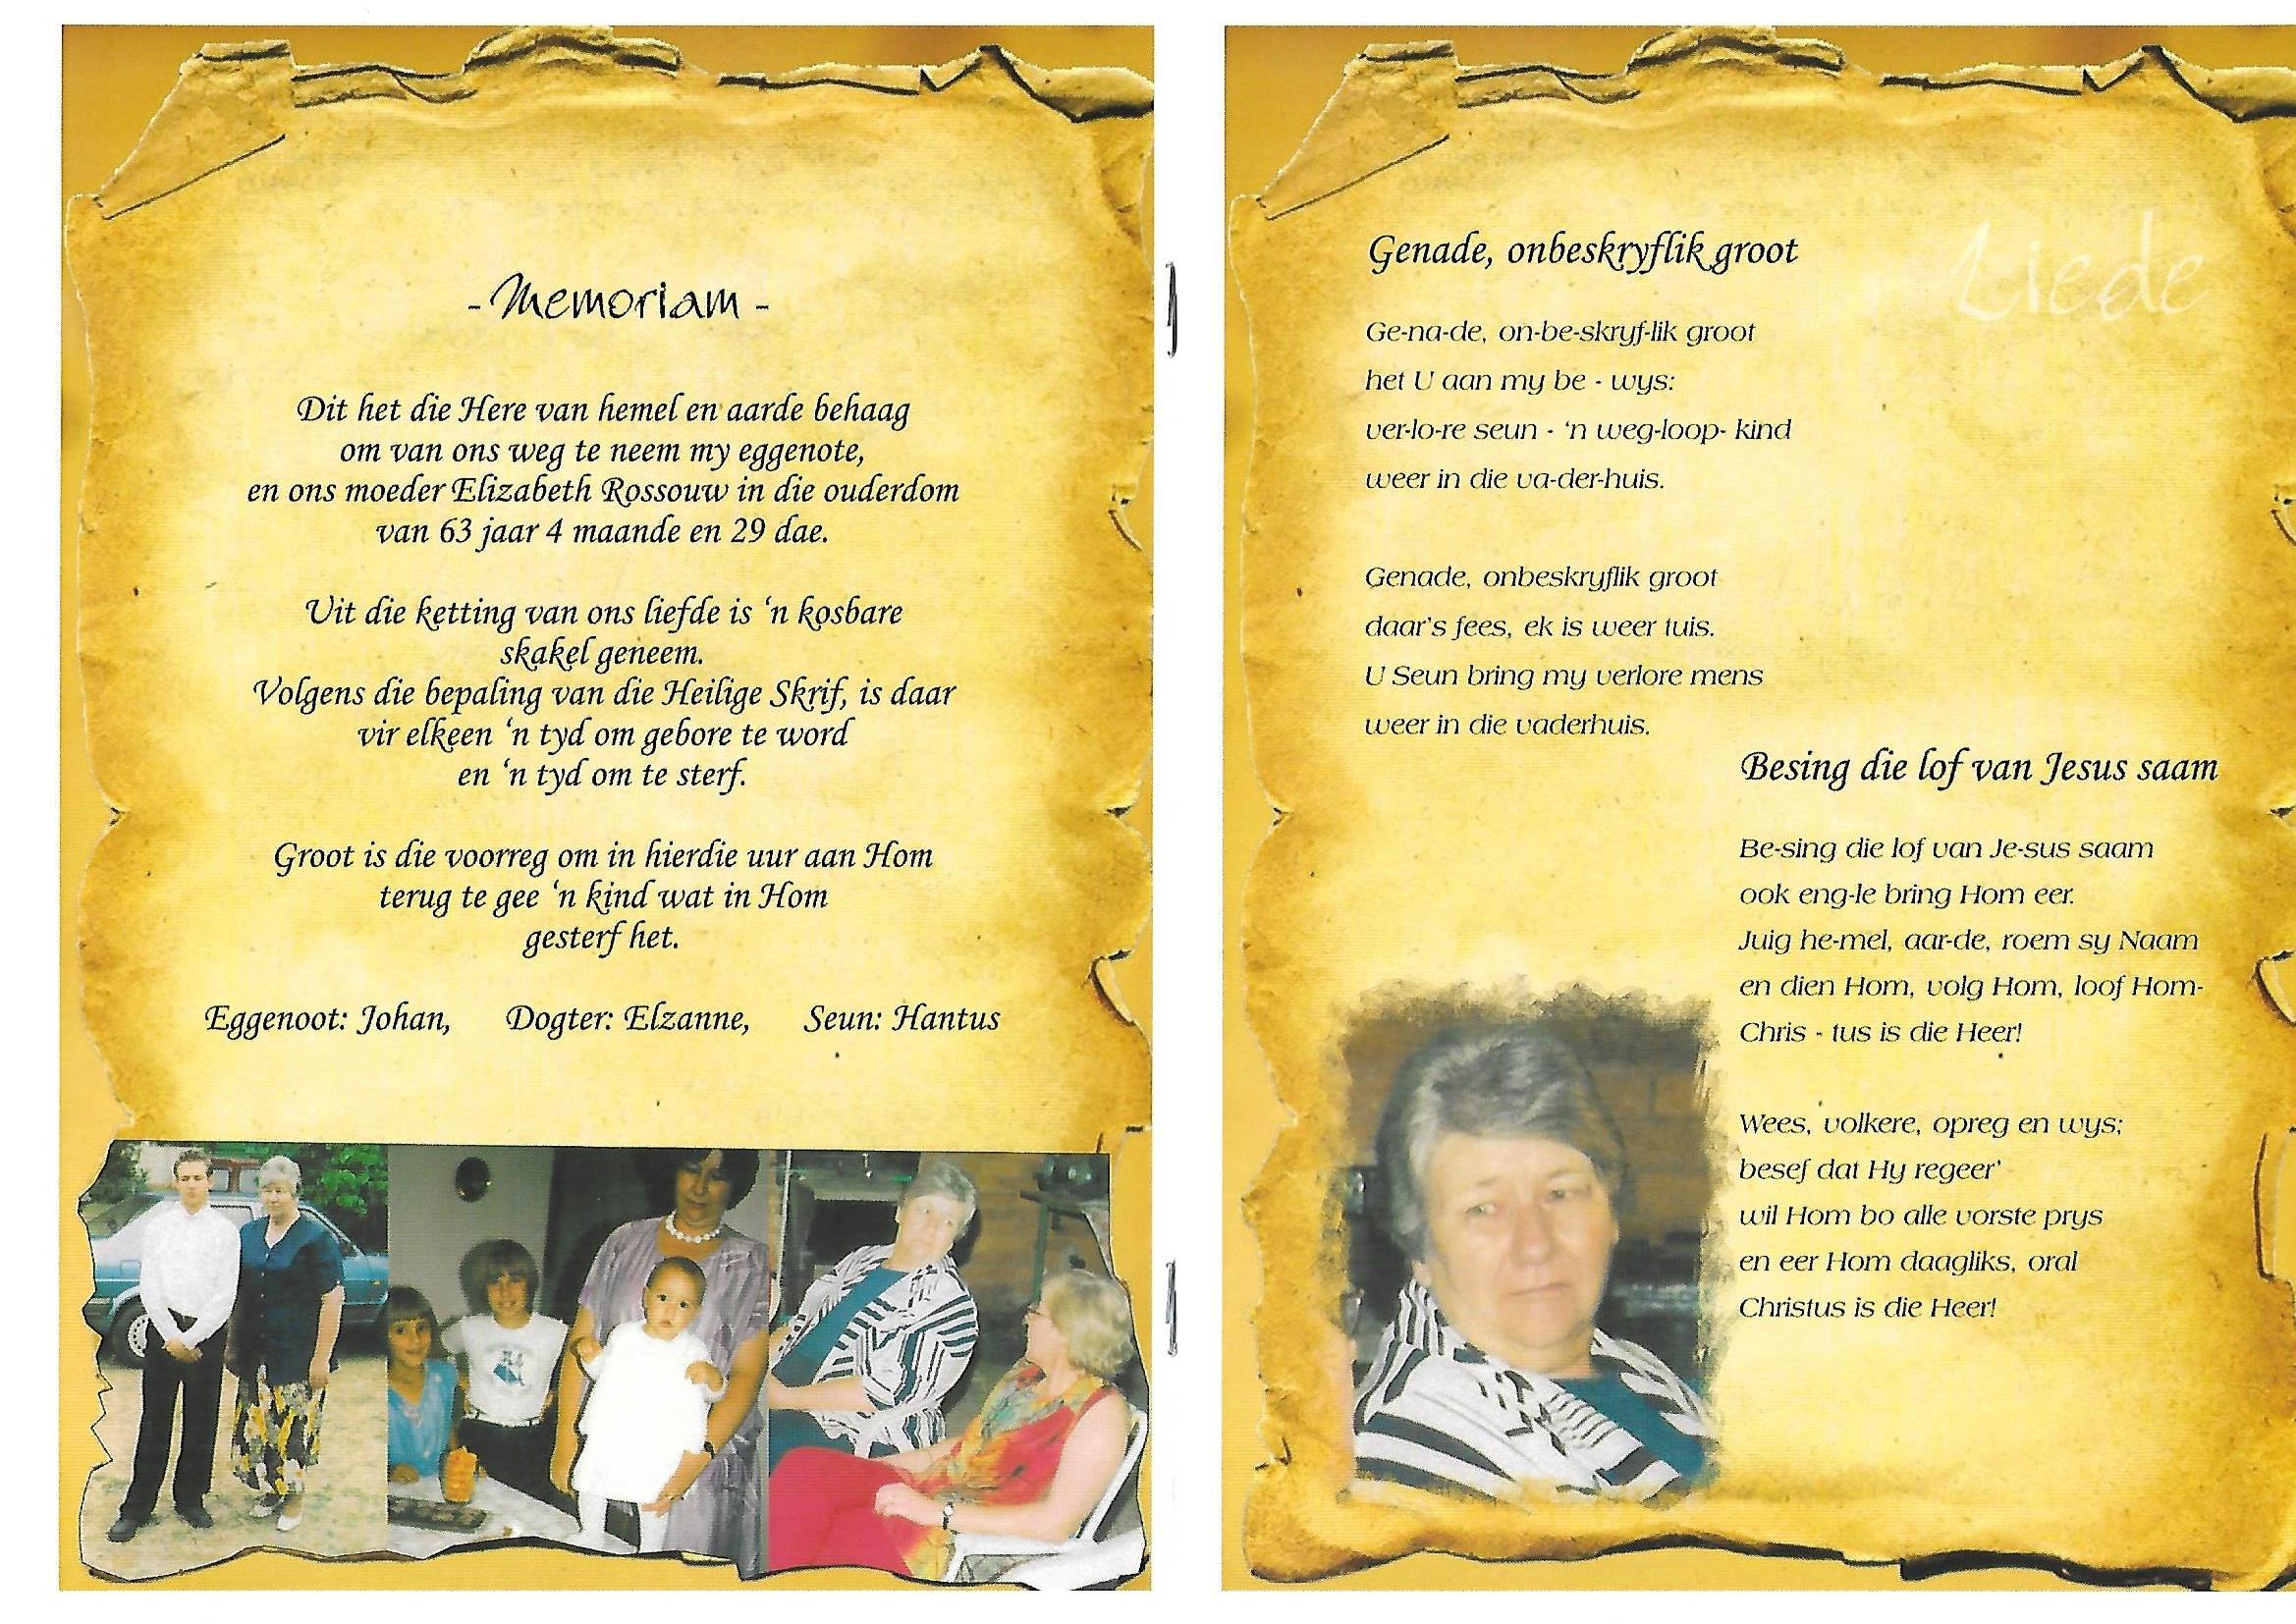 - Memoriam -
Dit het die Here van hemel en aarde behaag
om van ons weg te neem my eggenote,
en ons moeder Elizabeth Rossouw in die ouderdom
van 63 jaar 4 maande en 29 dae.
Uit die ketting van ons liefde is ‘n kosbare
skakel geneem.
Volgens die bepaling van die Heilige Skrif, is daar
vir elkeen ‘n tyd om gebore te word
en ‘n tyd om te sterf.
Groot is die voorreg om in hierdie uur aan Hom
terug te gee ‘n kind wat in Hom
gesterf het.
Eggenoot: Johan, Dogter: Elzanne, Seun: Hantus
Liede
Genade, onbeskryflik groot
Ge-na-de, on-be-skryf-lik groot
het U aan my be - wys:
ver-lo-re seun - ‘n weg-loop- kind
weer in die va-der-huis.
Genade, onbeskryflik groot
daar's fees, ek is weer tuis.
U Seun bring my verlore mens
weer in die vaderhuis.
Besing die lof van Jesus saam
Be-sing die lof van Je-sus saam
ook eng-le bring Hom eer.
Juig he-mel, aar-de, roem sy Naam
en dien Hom, volg Hom, loof Hom-
Chris - tus is die Heer!
Wees, volkere, opreg en wys;
besef dat Hy regeer'
wil Hom bo alle vorste prys
en eer Hom daagliks, oral
Christus is die Heer!